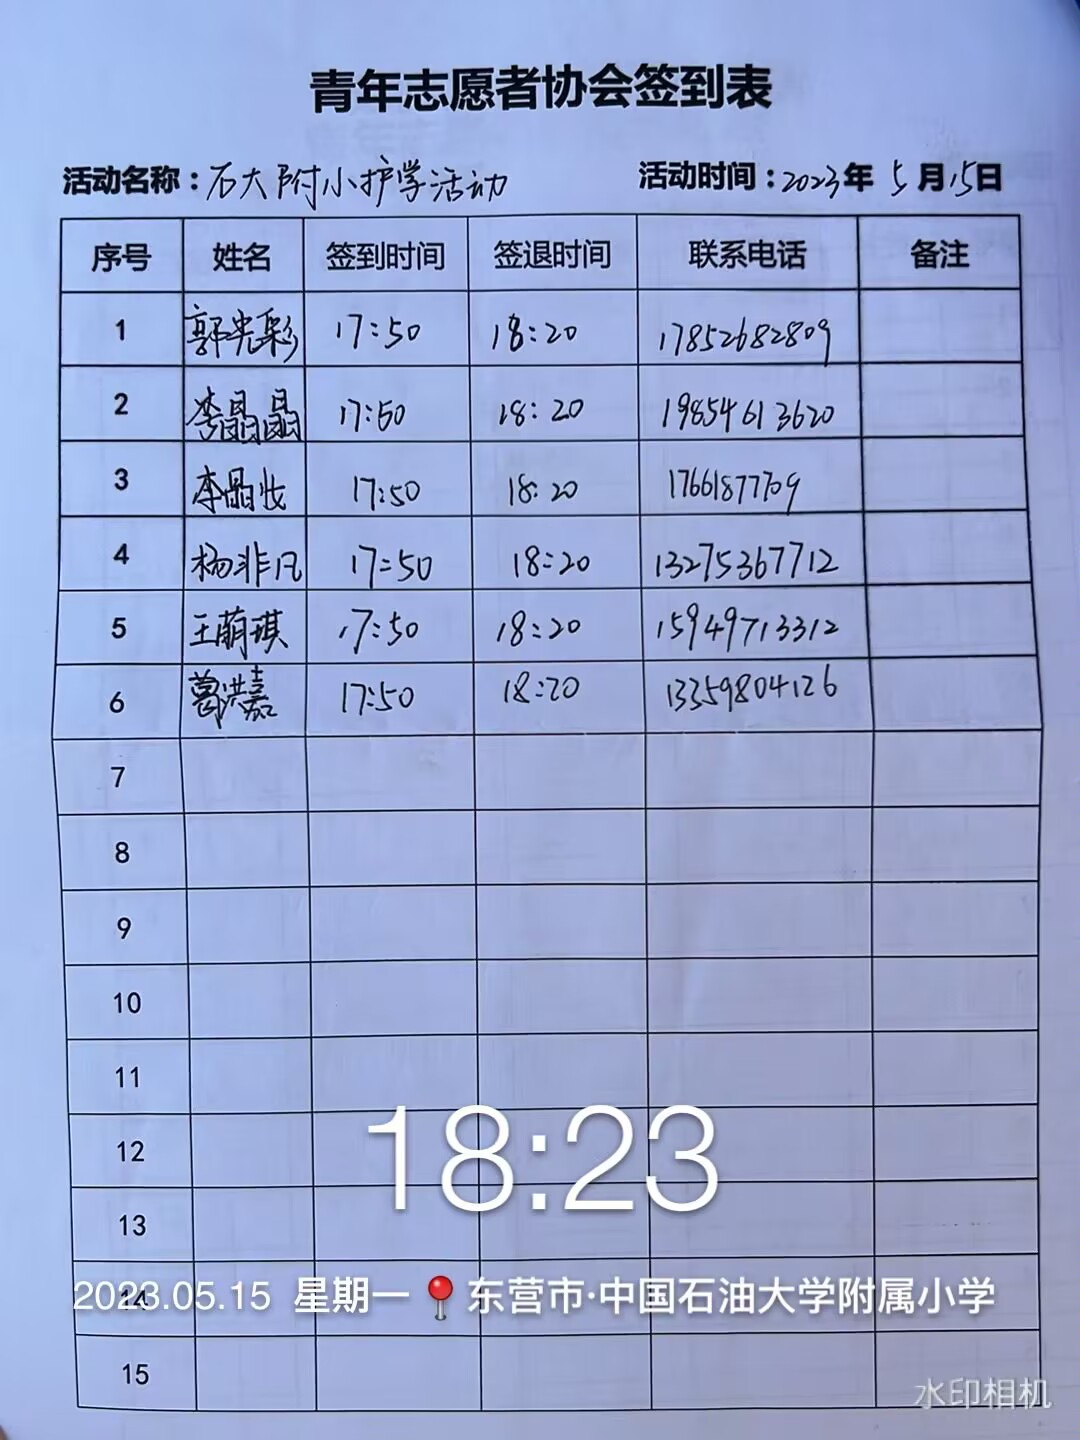 青年志愿者协会签到表
活动名称：石大附小护学活动 活动时间：2023年 5月15日
序号 姓名 签到时间 签退时间 联系电话 备注
1 郭宪彩 17:50 18:20 17852682809
2 李晶晶 17:50 18:20 19854613620
3 李晶 17:50 18:20 17661877709
4 杨非凡 17:50 18:20 13275367712
5 王萌琪 17:50 18:20 15949713312
6 葛洪嘉 17:50 18:20 13359804126
7
8
9
10
11
12
18:23
13
14
2023.05.15 星期一 东营市·中国石油大学附属小学
15
水印相机